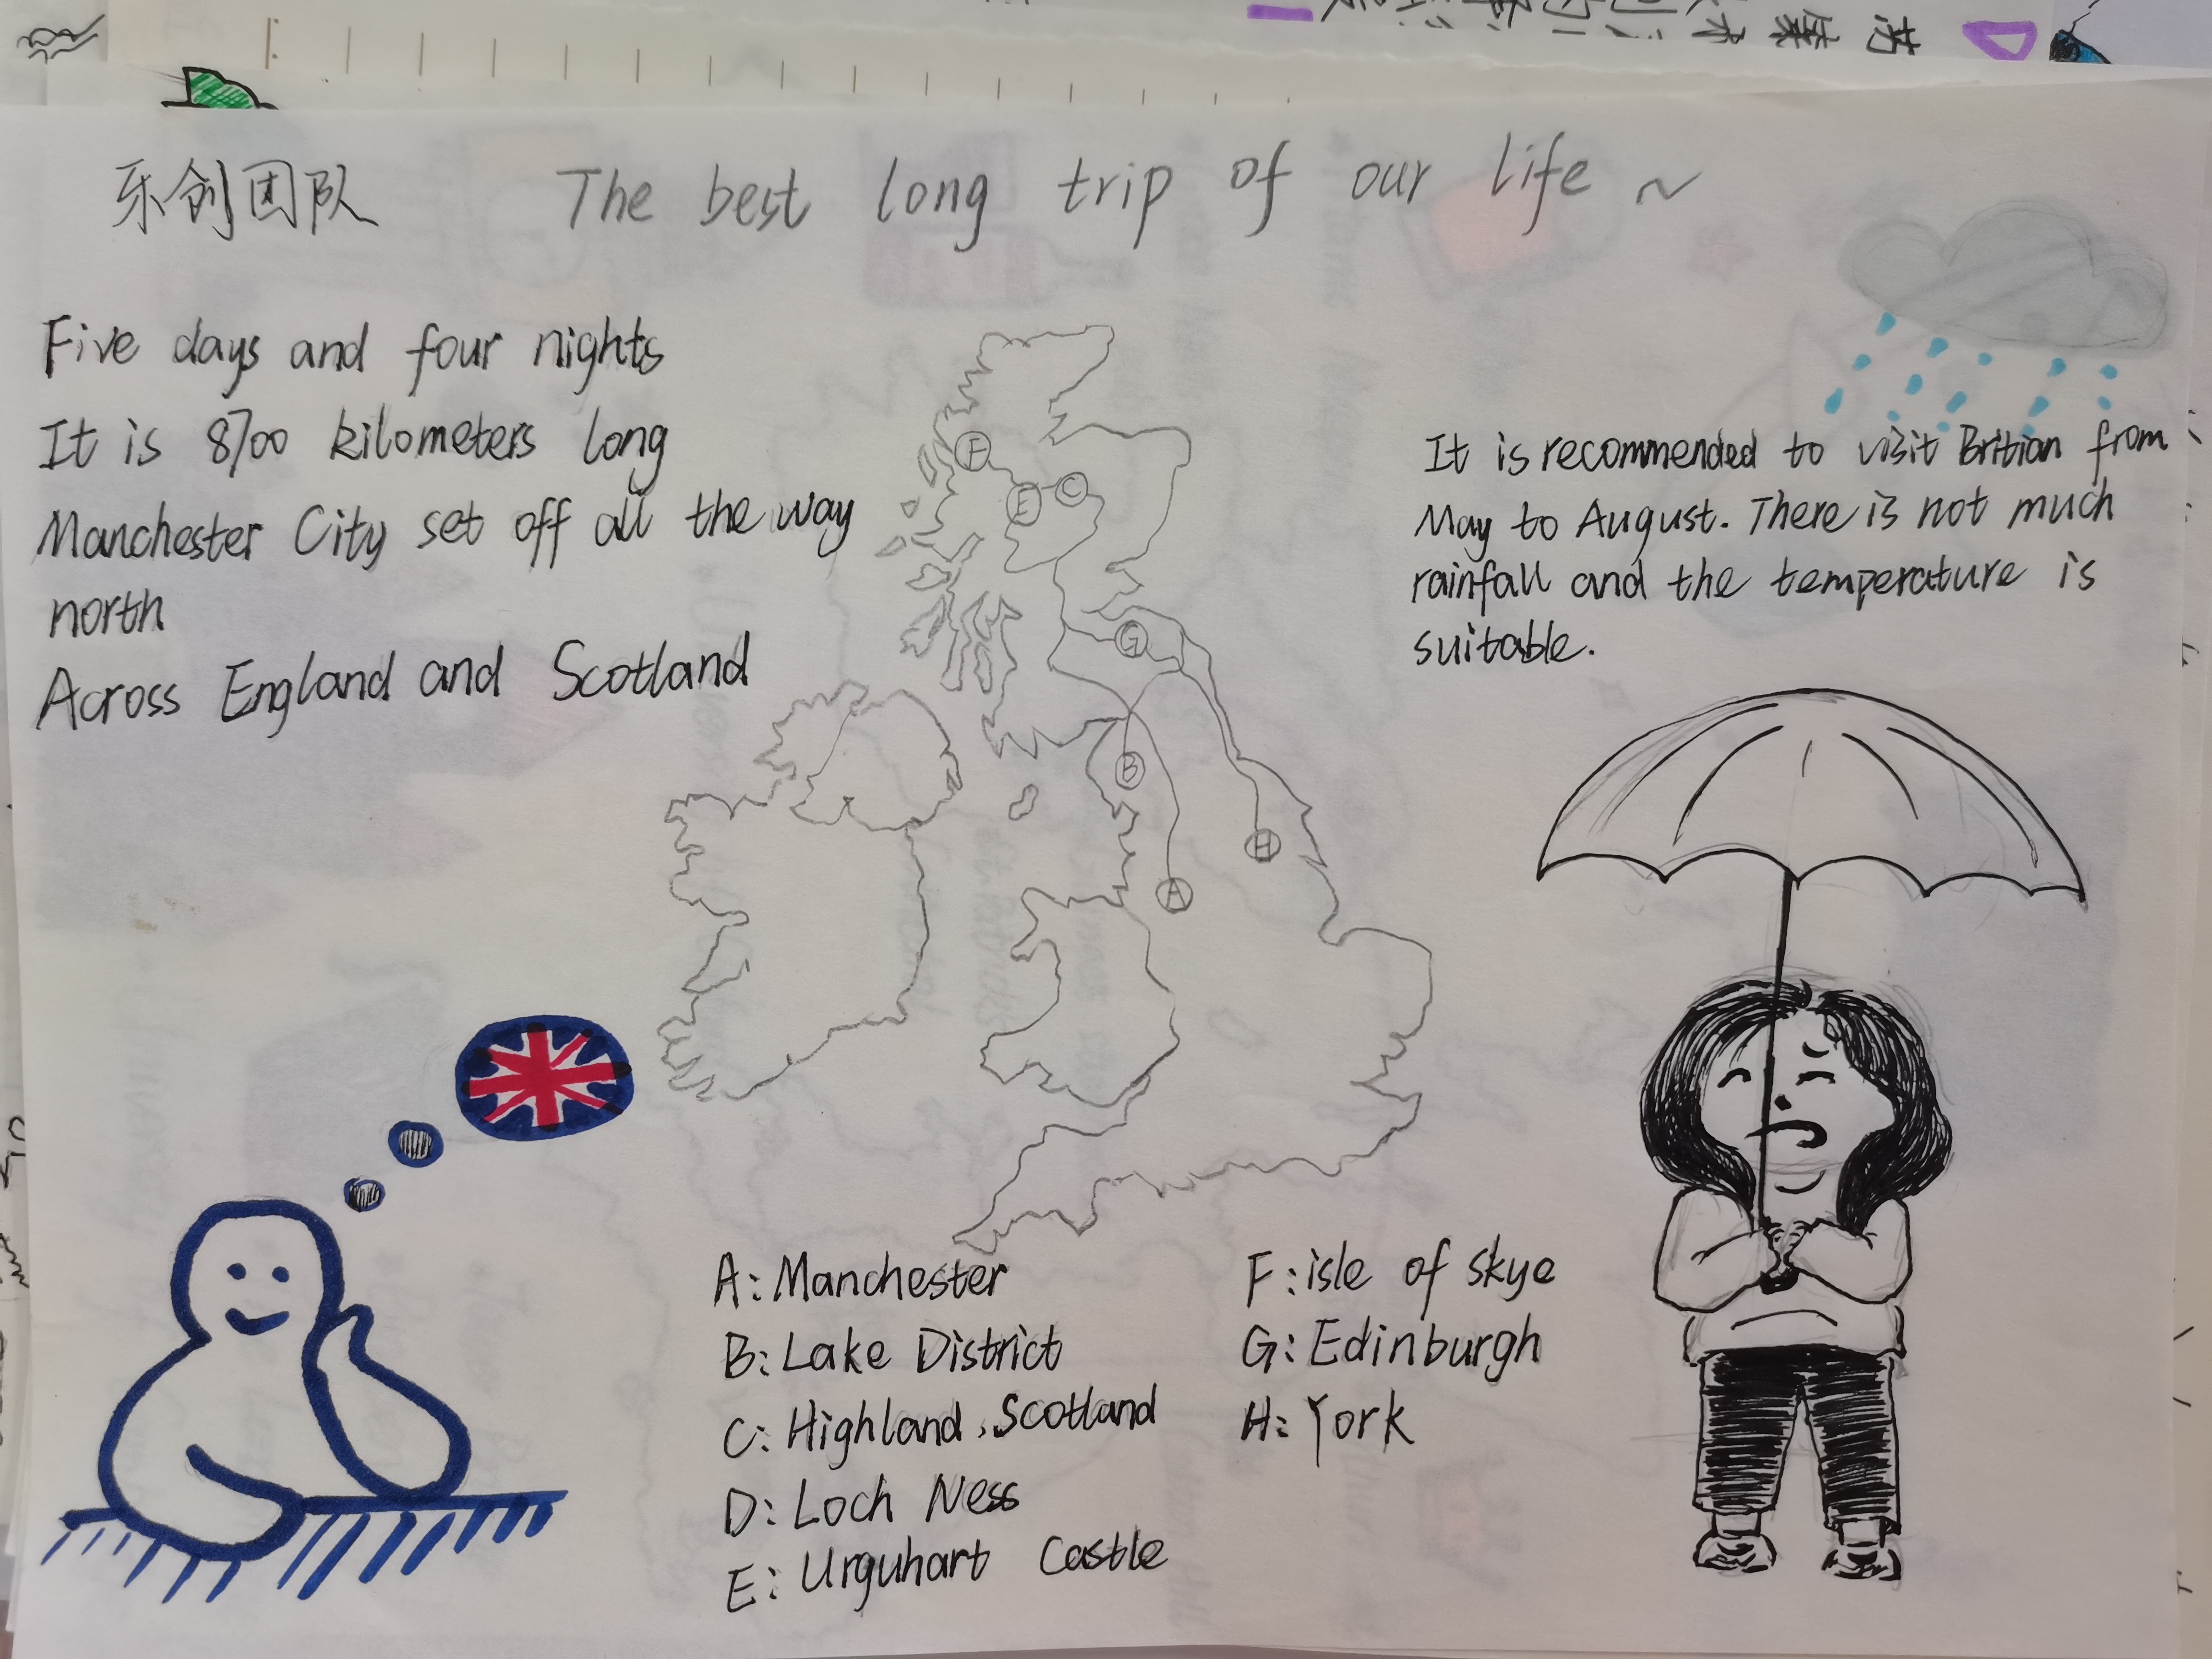 乐创团队 The best long trip of our life ~
Five days and four nights
It is 8700 kilometers long
Manchester City set off all the way
north
Across England and Scotland
It is recommended to visit Brition from
May to August. There is not much
rainfall and the temperature is
suitable.
F
E
C
G
B
H
A
A: Manchester
B: Lake District
C: Highland, Scotland
D: Loch Ness
E: Urguhart Castle
F: isle of skye
G: Edinburgh
H: York